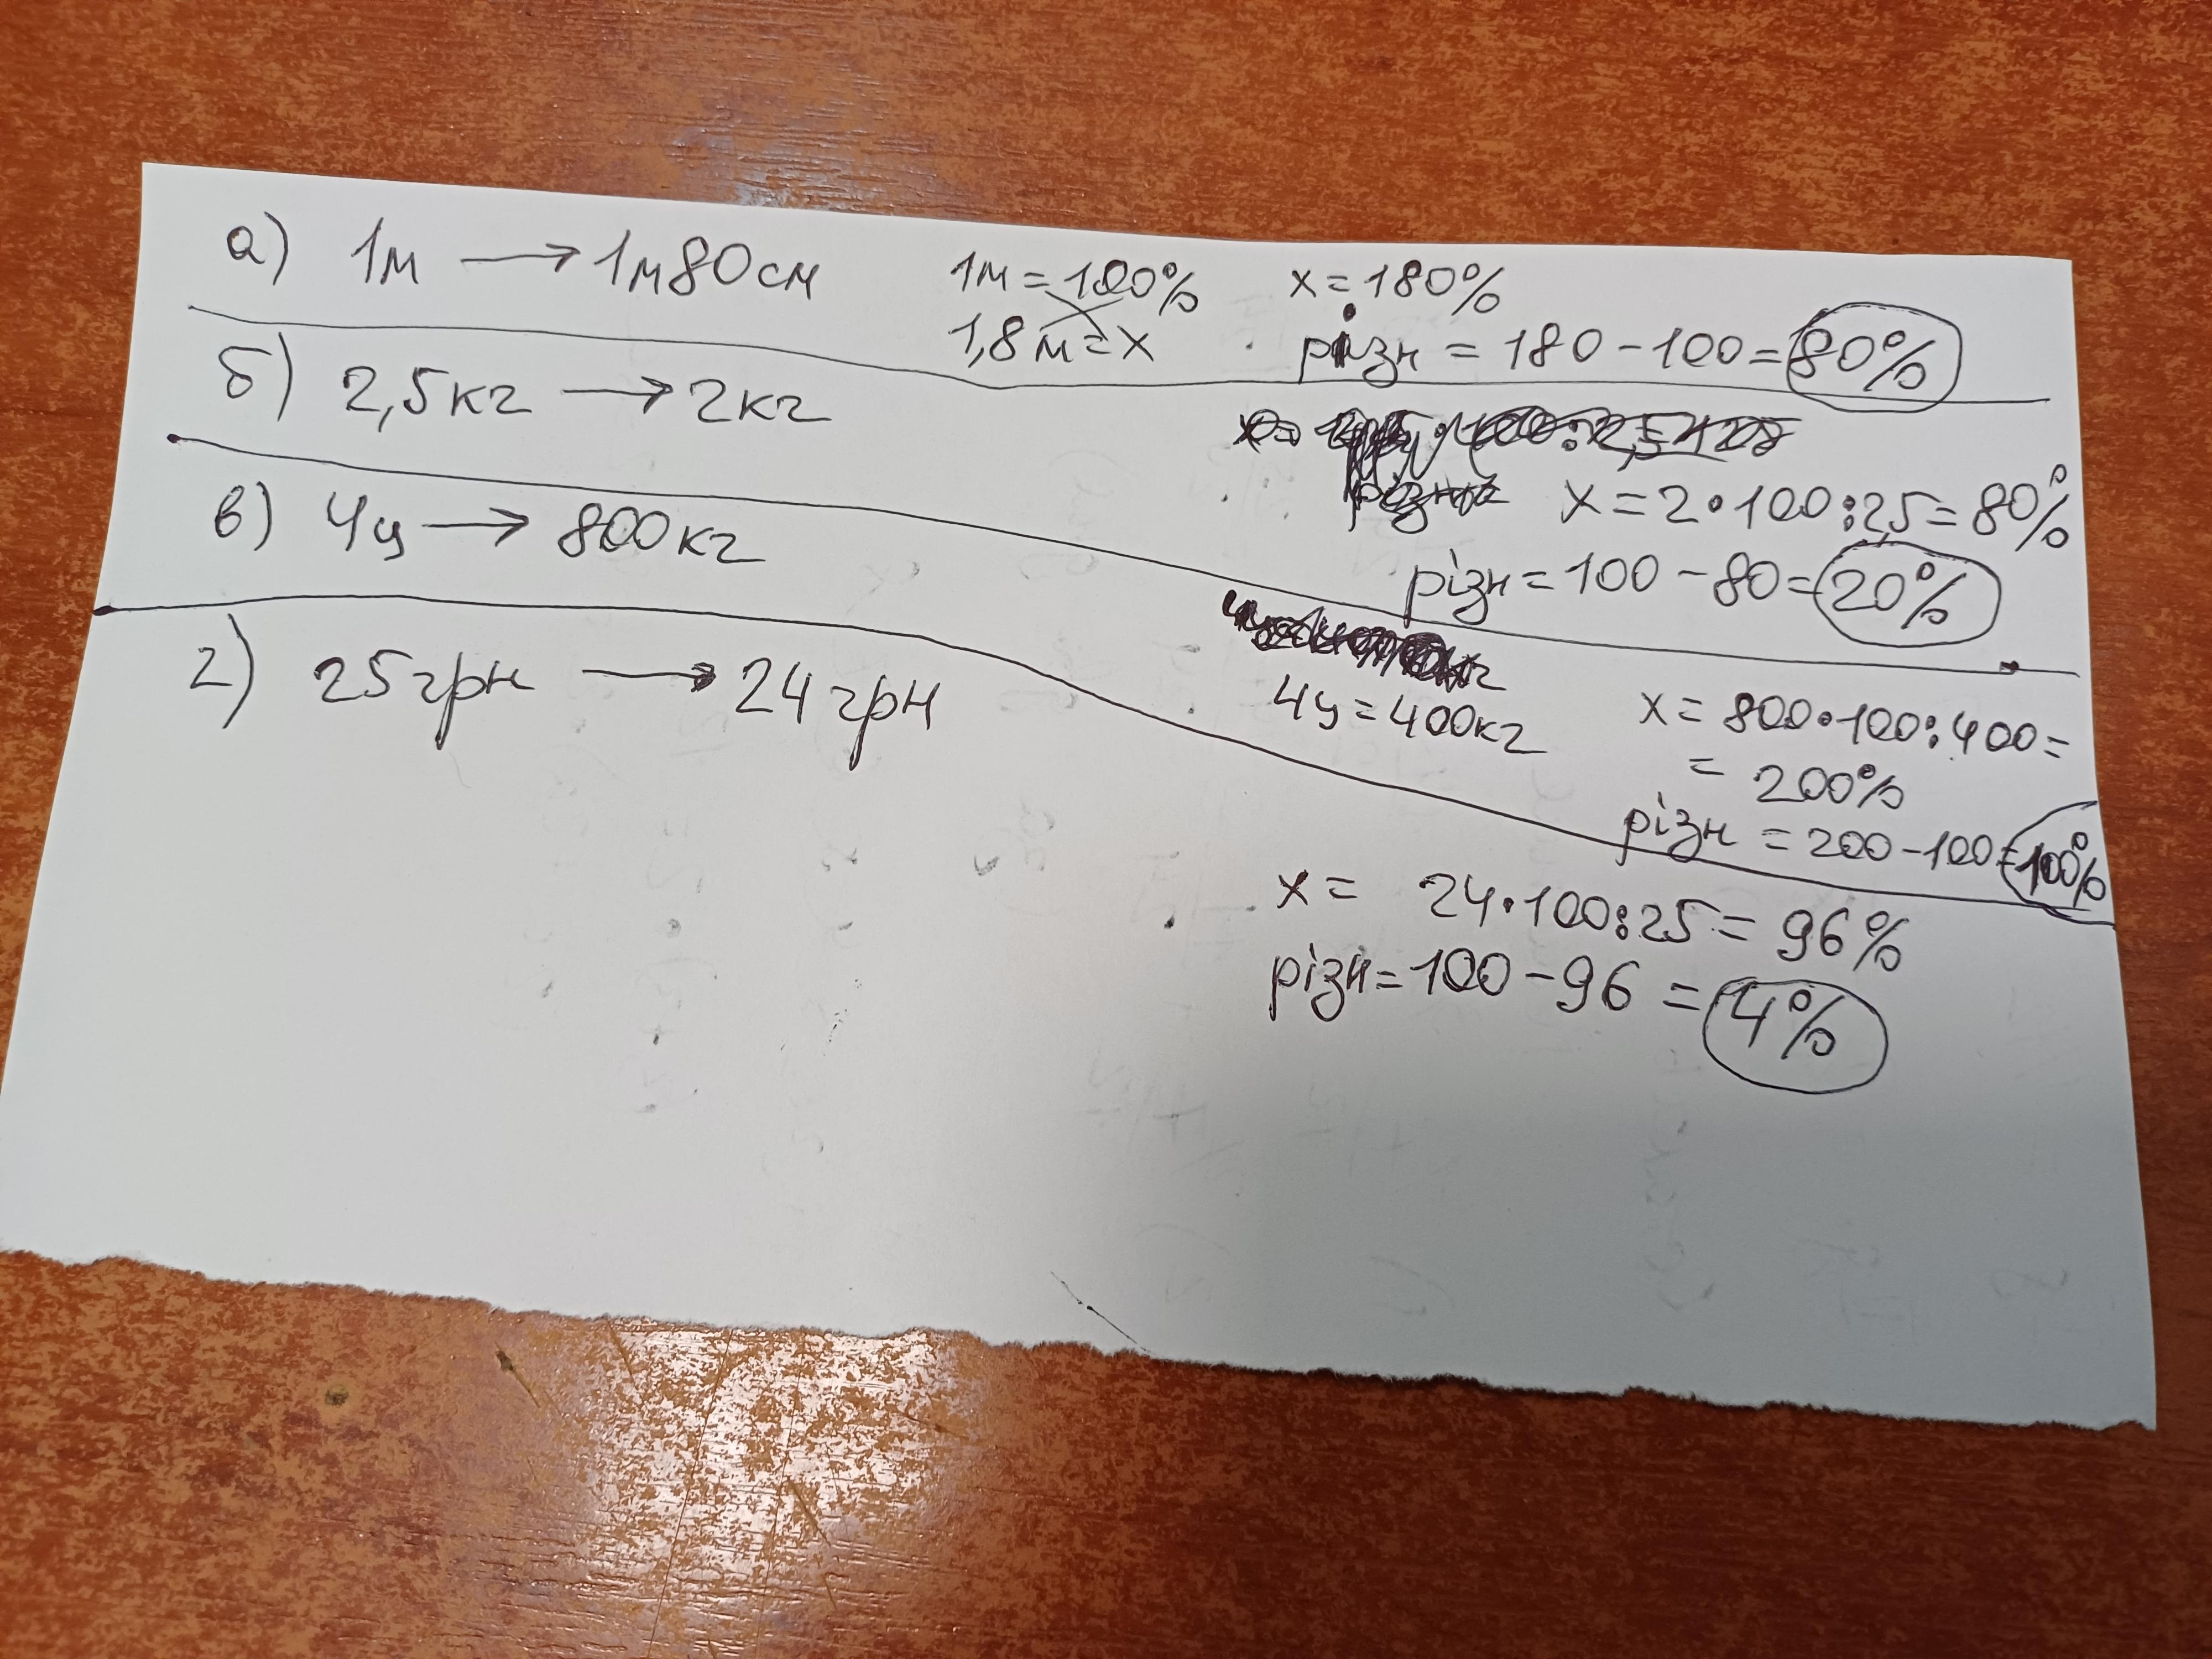 а) 1м → 1м80см
1м = 100%
1,8м = х
х = 180%
різн = 180 - 100 = 80%
б) 2,5кг → 2кг
х = 2 • 100 : 2,5 = 80%
різн = 100 - 80 = 20%
в) 4ц → 800кг
4ц = 400кг
х = 800 • 100 : 400 =
= 200%
різн = 200 - 100 = 100%
г) 25грн → 24грн
х = 24 • 100 : 25 = 96%
різн = 100 - 96 = 4%